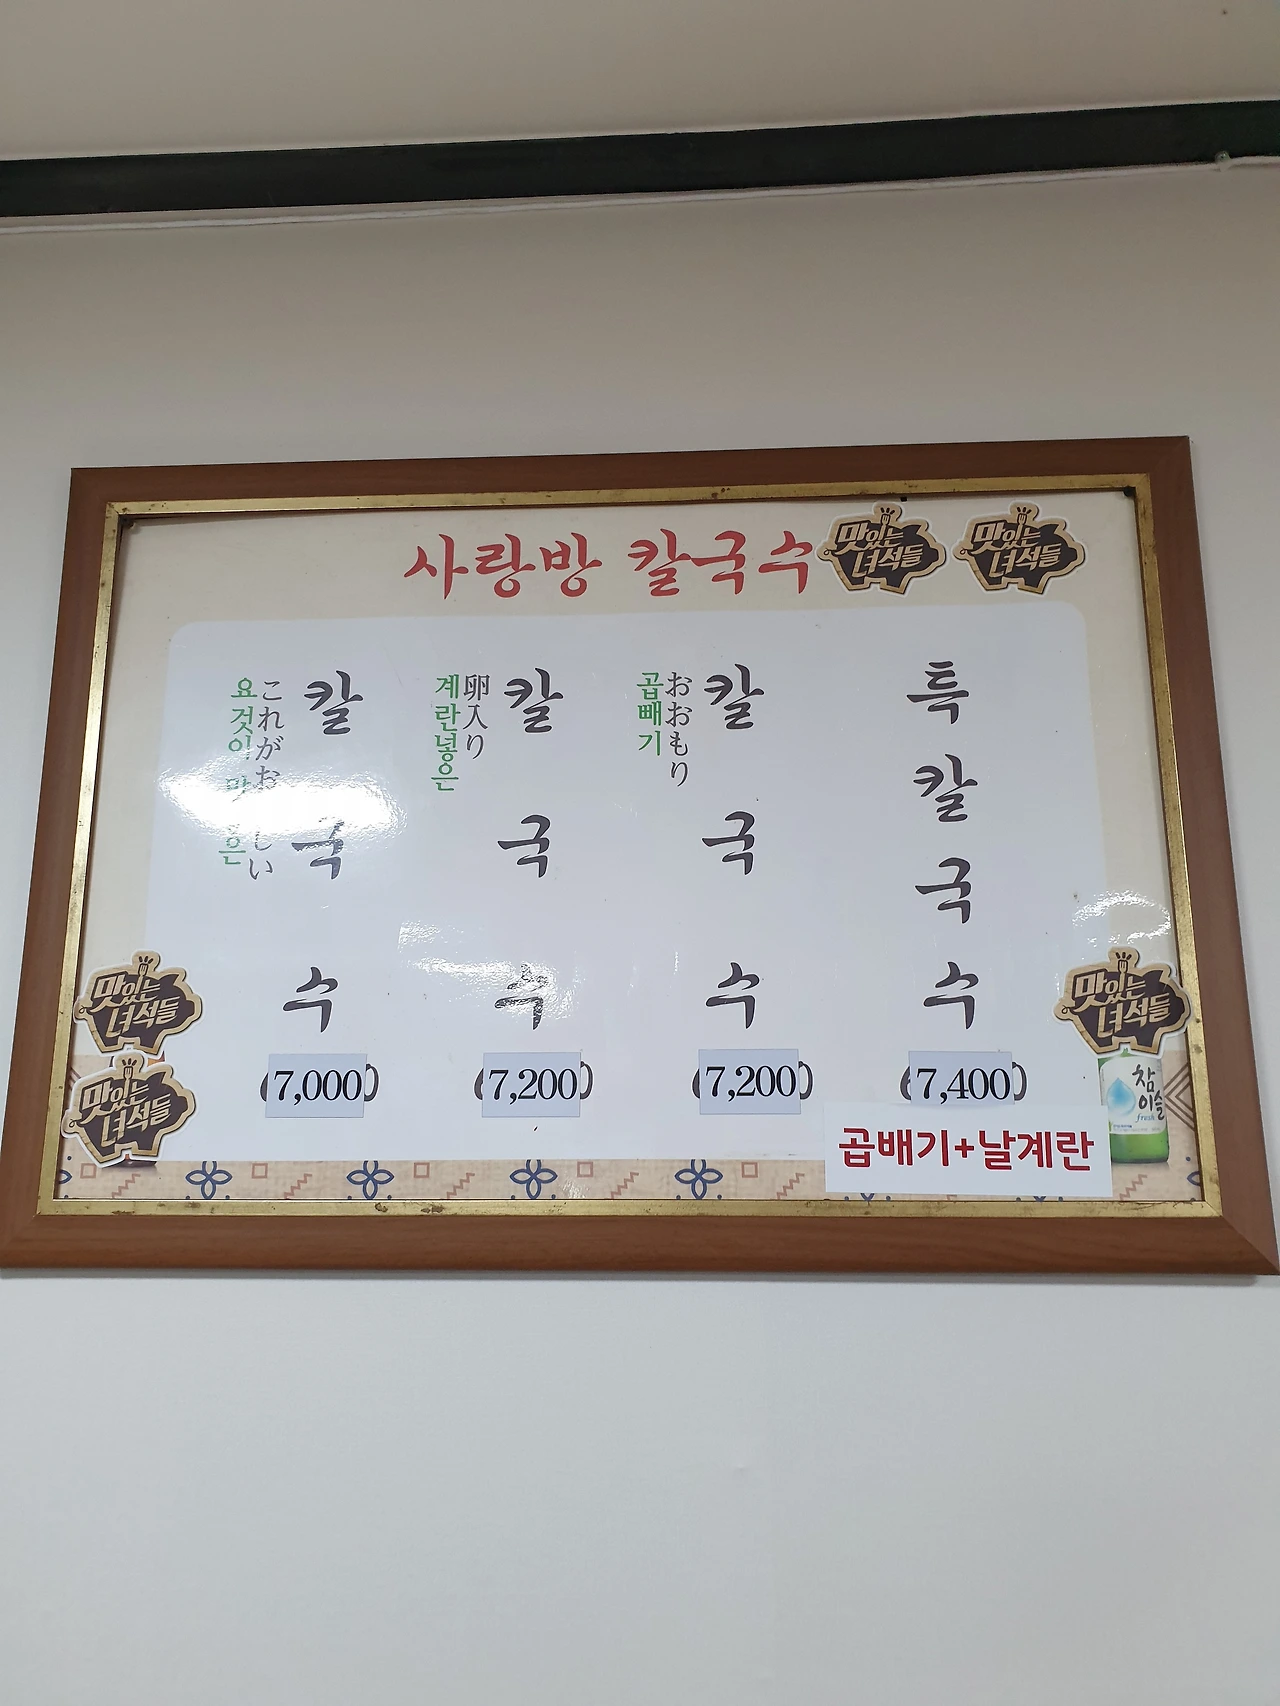 사랑방 칼국수
맛있는 녀석들
맛있는 녀석들
칼국수
これがおいしい
요것이 맛 은
7,000
칼국수
卵入り
계란넣은
7,200
칼국수
おおもり
곱빼기
7,200
특칼국수
7,400
곱배기+날계란
맛있는 녀석들
맛있는 녀석들
맛있는 녀석들
참이슬
fresh